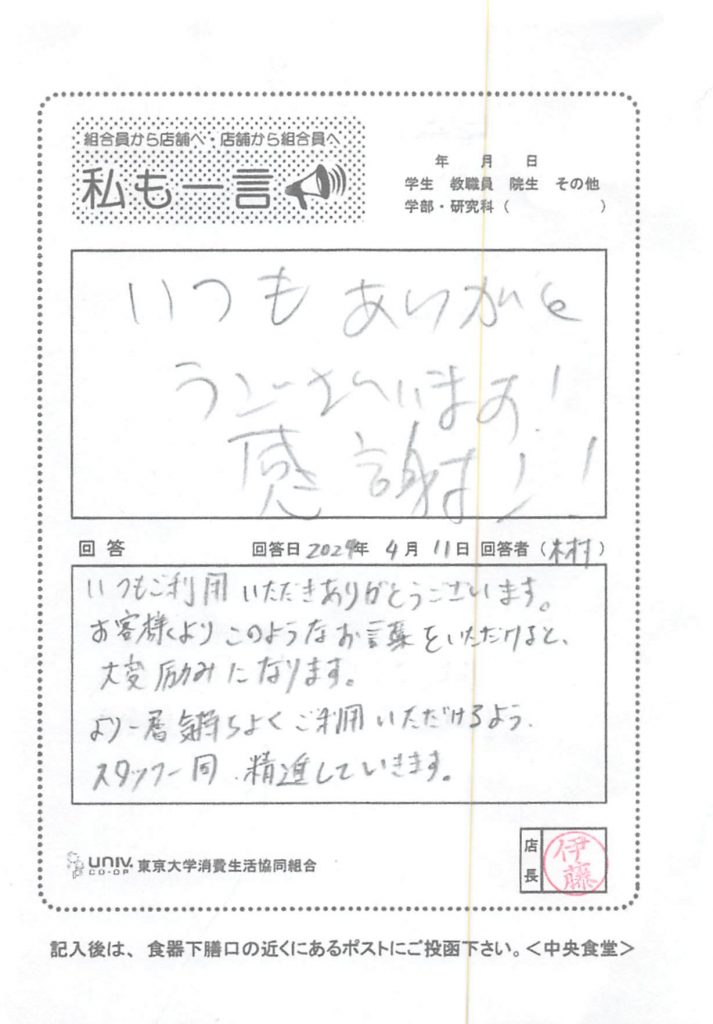 組合員から店舗へ・店舗から組合員へ
私も一言
年 月 日
学生 教職員 院生 その他
学部・研究科( )
いつもありがと
うございます!
感謝!!
回答 回答日 2024年 4月 11日 回答者(木村)
いつもご利用いただきありがとうございます。
お客様よりこのようなお言葉をいただけると、
大変励みになります。
より一層気持ちよくご利用いただけるよう、
スタッフ一同、精進していきます。
UNIV. CO-OP 東京大学消費生活協同組合
店長 伊藤
記入後は、食器下膳口の近くにあるポストにご投函下さい。<中央食堂>